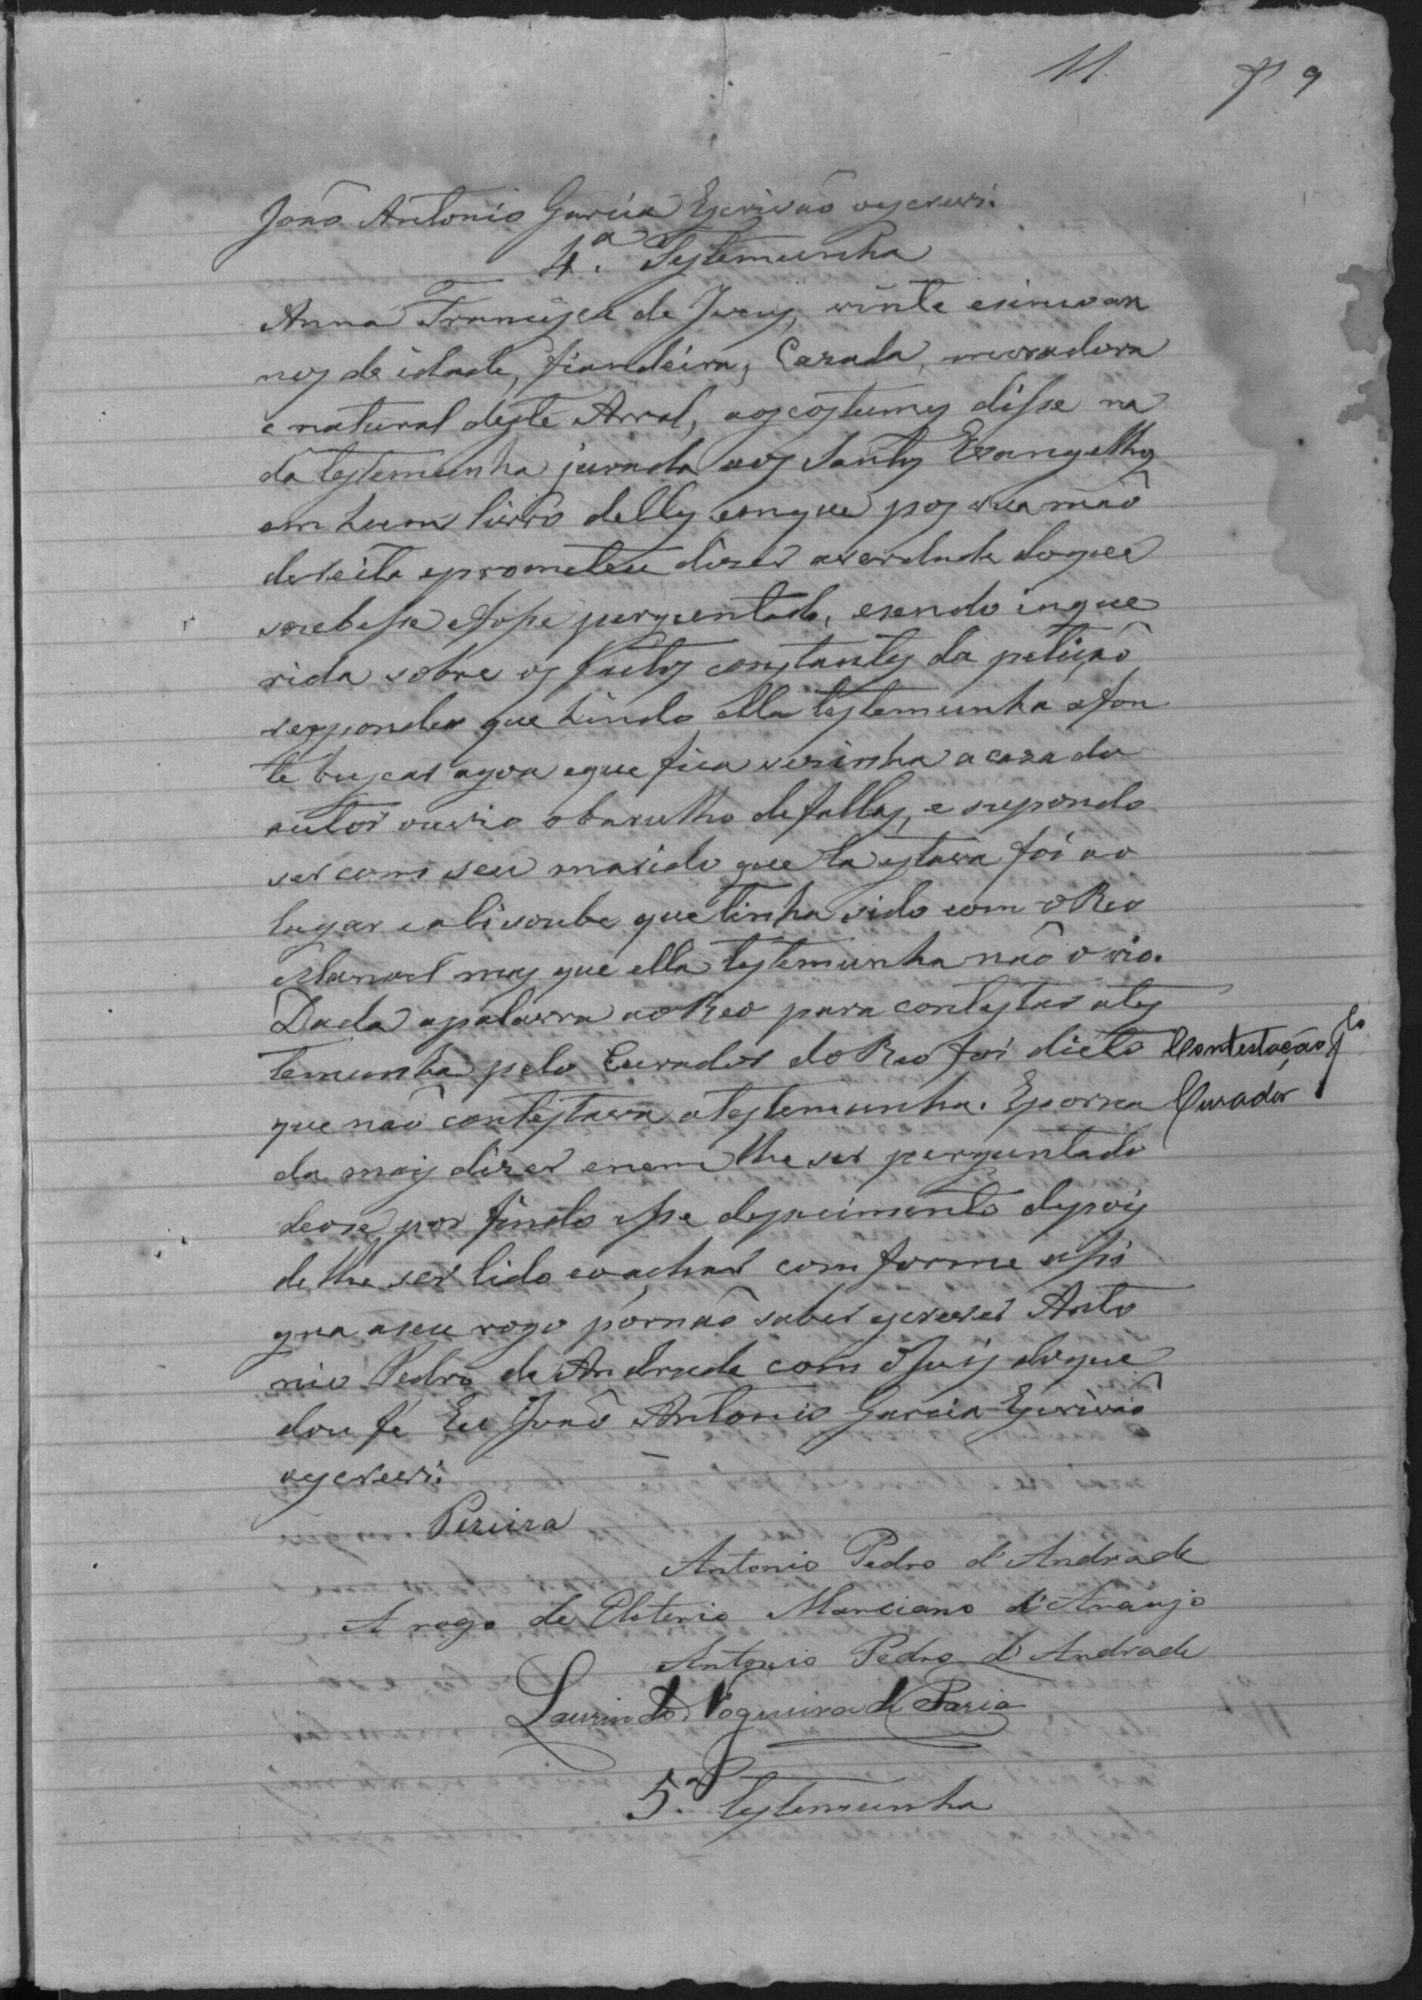 11. 9
João Antonio Garcia Escrivão oescrevi.
4.ª Testemunha
Anna Francisca de Jesus, vinte ecinco an
nos de idade, fiandeira, Cazada, moradora
e natural deste Arral, aos costumes disse na
da testemunha jurada aos Santos Evangelhos
em hum livro delles emque pos sua mão
dereita eprometeu dizer averdade doque
soubesse efosse perguntado, esendo inque
rida sobre os factos constantes da petição
respondeu que hindo ella testemunha afon
te buscar agoa eque fica vezinha a caza do
autor ouvio obarulho de fallas, e supondo
ser com seu marido que la estava foi ao
lugar e ali soube que tinha sido com o Reo
Manoel mas que ella testemunha não o vio.
Dada apalavra ao Reo para contestar ates
temunha pelo Curador do Reo foi dicto
que não contestava atestemunha. Epor na
Contestação plo
Curador
da mais dizer enem lhe ser perguntado
deose por findo esse depoimento depois
de lhe ser lido eoachar comforme assi
gna aseu rogo pornão saber escrever Anto
nio Pedro de Andrade com o Juis doque
dou fé Eu João Antonio Garcia Escrivão
oescrevi.
Pereira
Antonio Pedro d'Andrade
A rogo de Eloterio Marciano d'Araujo
Antonio Pedro d'Andrade
Laurindo Nogueira de Faria
5.ª testemunha